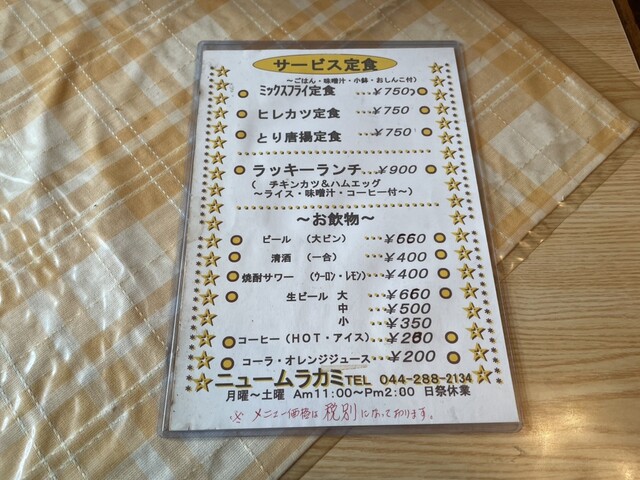 サービス定食
～ごはん・味噌汁・小鉢・おしんこ付)
ミックスフライ定食 …¥750
ヒレカツ定食 …¥750
とり唐揚定食 …¥750
ラッキーランチ…¥900
( チキンカツ&ハムエッグ
～ライス・味噌汁・コーヒー付～)
～お飲物～
ビール (大ビン) …¥660
清酒 (一合) …¥400
焼酎サワー (ウーロン・レモン) …¥400
生ビール 大 …¥660
中 …¥500
小 …¥350
コーヒー(HOT・アイス)…¥200
コーラ・オレンジジュース…¥200
ニュームラカミTEL 044-288-2134
月曜～土曜 Am11:00～Pm2:00 日祭休業
※ メニュー価格は税別になっております。